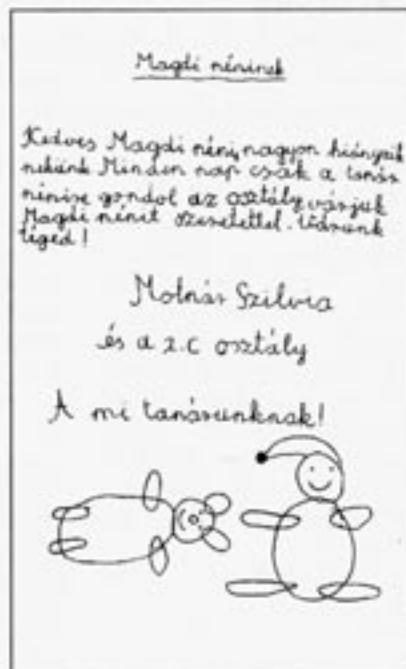 Magdi néninek
Kedves Magdi néni, nagyon hiányzik
nekünk Minden nap csak a tanár
nénire gondol az osztály, várjuk
Magdi nénit szeretettel. Várunk
téged!
Molnár Szilvia
és a 2.c osztály
A mi tanárunknak!